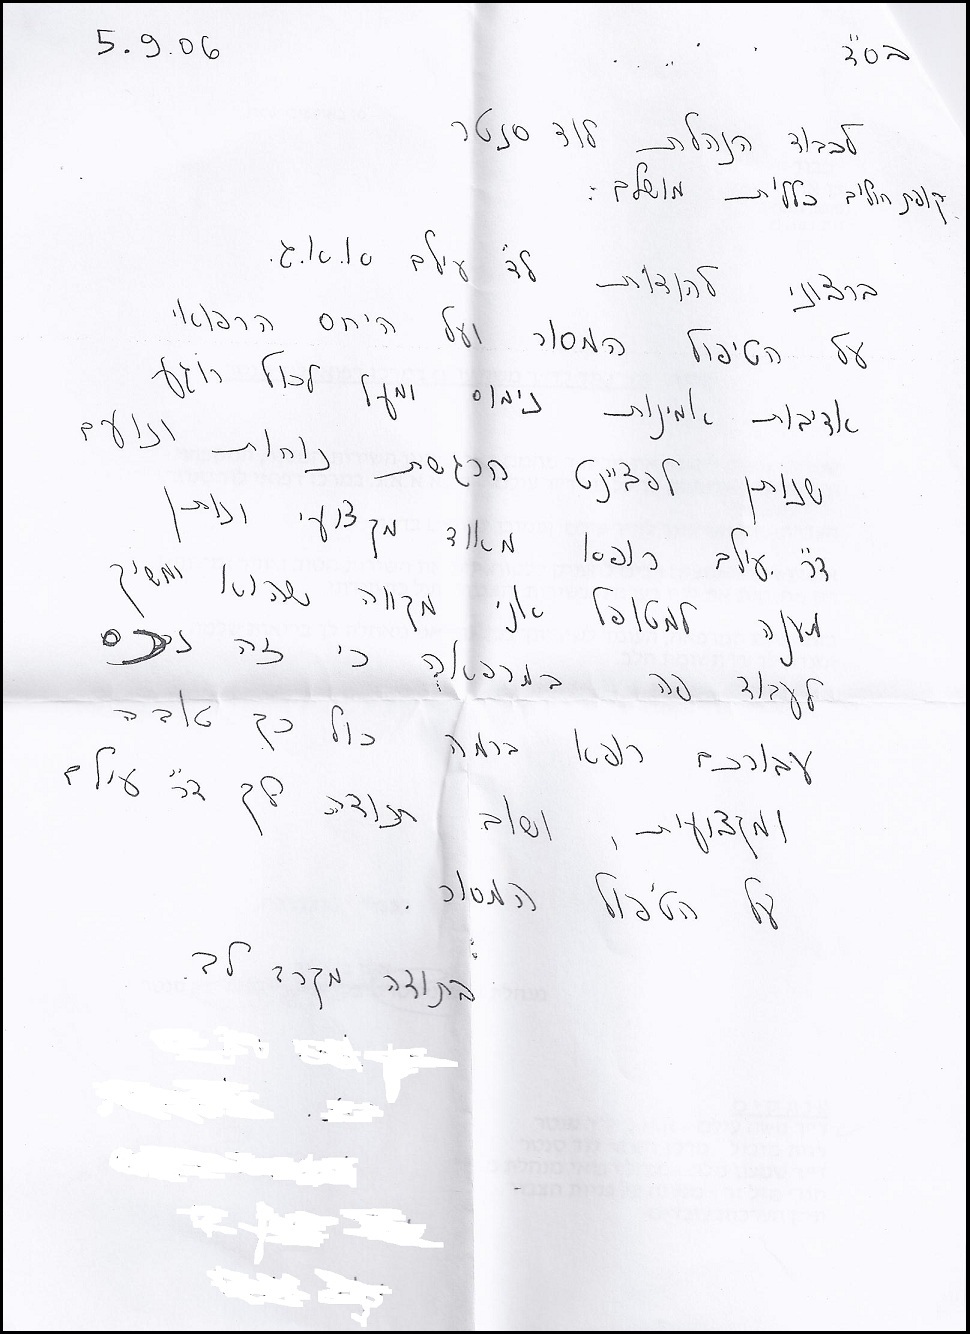 בס"ד 5.9.06
לכבוד הנהלת לוד סנטר
קופת חולים כללית מושלם:
ברצוני להודות לד' עילם א.א.ג.
על הטיפול המסור ועל היחס הרפואי
אדיבות אמינות נימוס ומעל לכול רוגע
שנותן לפציינט הרגשת נוחות ונועם
דר' עילם רופא מאוד מקצועי ונותן
מענה למטופל אני מקווה שהוא ימשיך
לעבוד פה במרפאה כי זה נכס
עבורכם רופא ברמה כול כך טובה
ומקצועית, ושוב תודה לך דר' עילם
על הטיפול המסור
בתודה מקרב לב